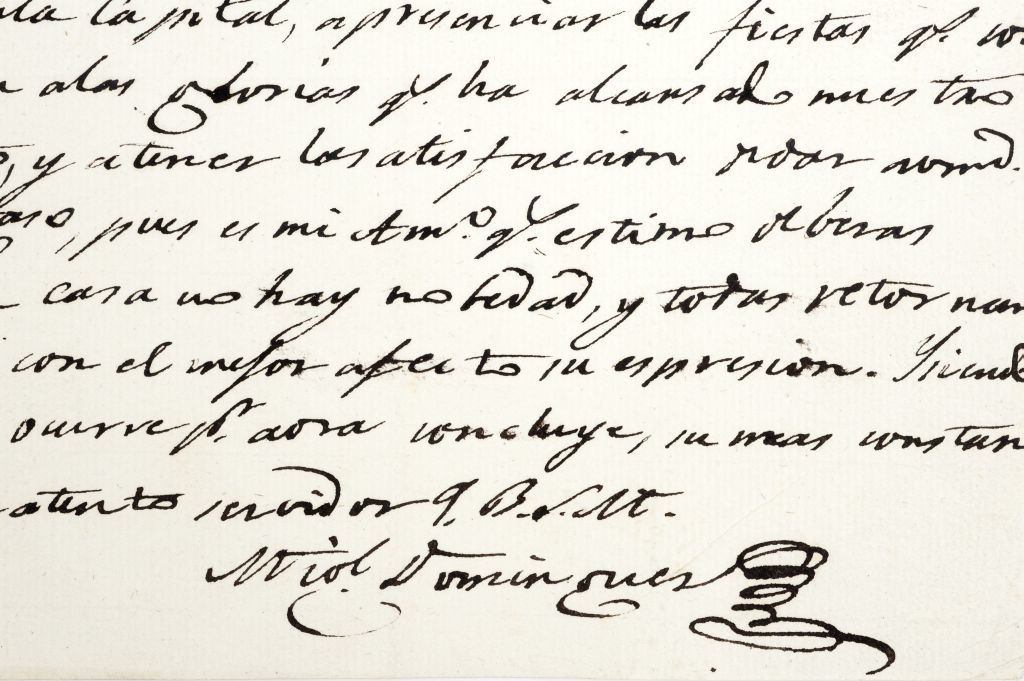 la Capital, apresenciar las fiestas qe.
alas glorias qe. ha alcansado nuestro
y atener lasatisfaccion
pues es mi Amo. qe. estimo deberas
casa no hay nobedad, y todas retornan
con el mejor afecto su espresion. Ysiendo
ocurre pr. aora concluye, su mas constan
atento servidor Q. B. S. M.
Migl. Domingues